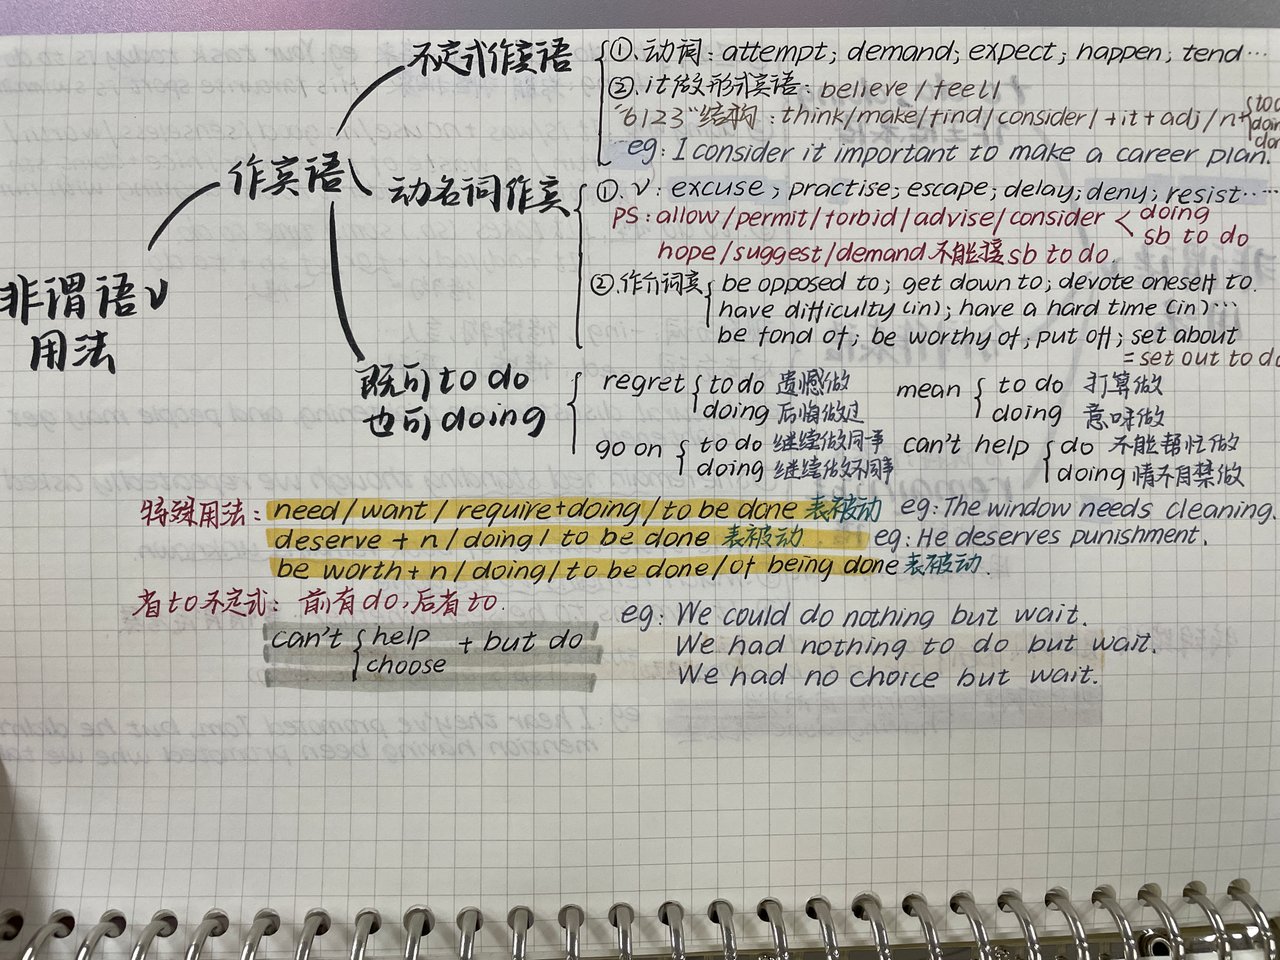 非谓语v
用法
作宾语
不定式作宾语
①.动词: attempt; demand; expect; happen; tend…
②.it做形式宾语: believe/feel/
"6123"结构: think/make/find/consider/+it+adj/n+
eg: I consider it important to make a career plan.
动名词作宾
①.v: excuse; practise; escape; delay; deny; resist……
PS: allow/permit/forbid/advise/consider < doing
sb to do
hope/suggest/demand 不能接 sb to do.
②.作介词宾 be opposed to; get down to; devote oneself to.
have difficulty (in); have a hard time (in)…
be fond of; be worthy of; put off; set about
= set out to do
既可 to do
也可 doing
regret { to do 遗憾做
doing 后悔做过
mean { to do 打算做
doing 意味做
go on { to do 继续做同事
doing 继续做不同事
can't help { do 不能帮忙做
doing 情不自禁做
特殊用法: need/want/require+doing/to be done 表被动 eg: The window needs cleaning.
deserve + n/doing/ to be done 表被动 eg: He deserves punishment.
be worth+n/doing/to be done/of being done 表被动.
省to不定式: 前有do,后省to.
can't { help + but do
choose
eg: We could do nothing but wait.
We had nothing to do but wait.
We had no choice but wait.